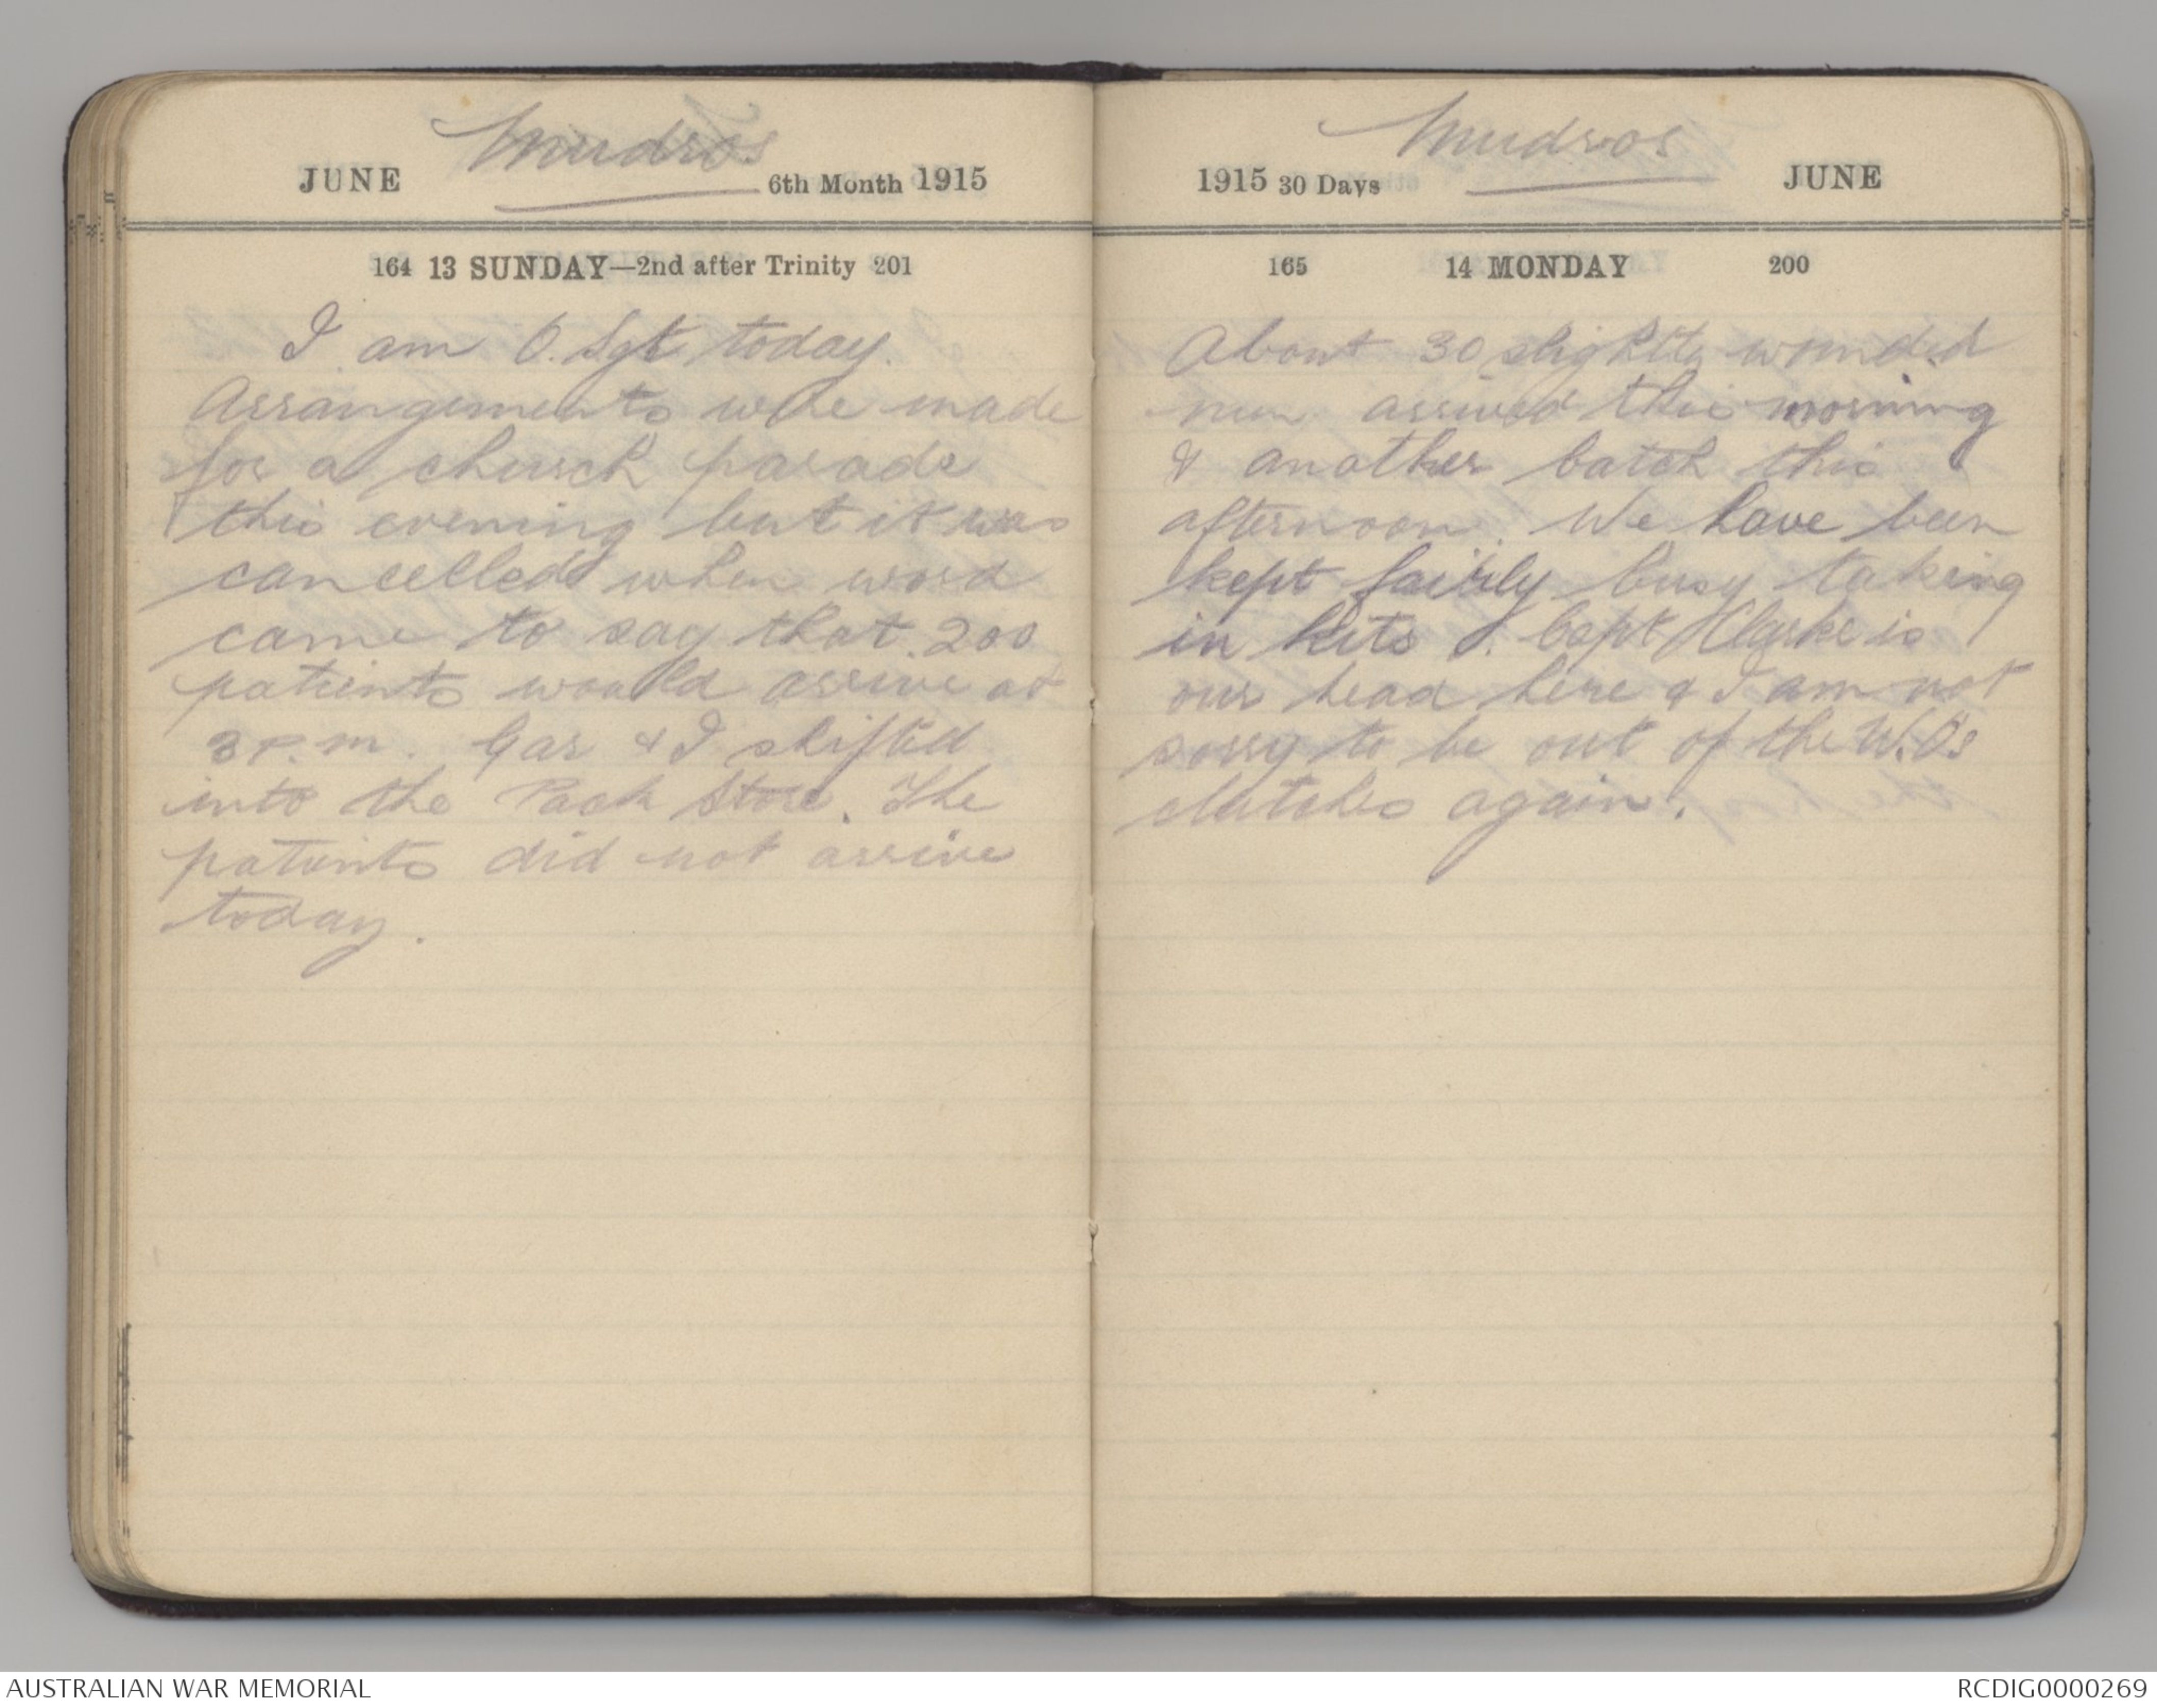 Mudros
JUNE 6th Month 1915
164 13 SUNDAY—2nd after Trinity 201
I am O. Sgt today.
Arrangements were made
for a church parade
this evening but it was
cancelled when word
came to say that 200
patients would arrive at
3 p.m. Gar & I shifted
into the Pack Store. The
patients did not arrive
today.
Mudros
1915 30 Days JUNE
165 14 MONDAY 200
About 30 slightly wounded
men arrived this morning
& another batch this
afternoon. We have been
kept fairly busy taking
in kits. Capt Clarke is
our head here & I am not
sorry to be out of the W.O's
clutches again.
AUSTRALIAN WAR MEMORIAL
RCDIG0000269